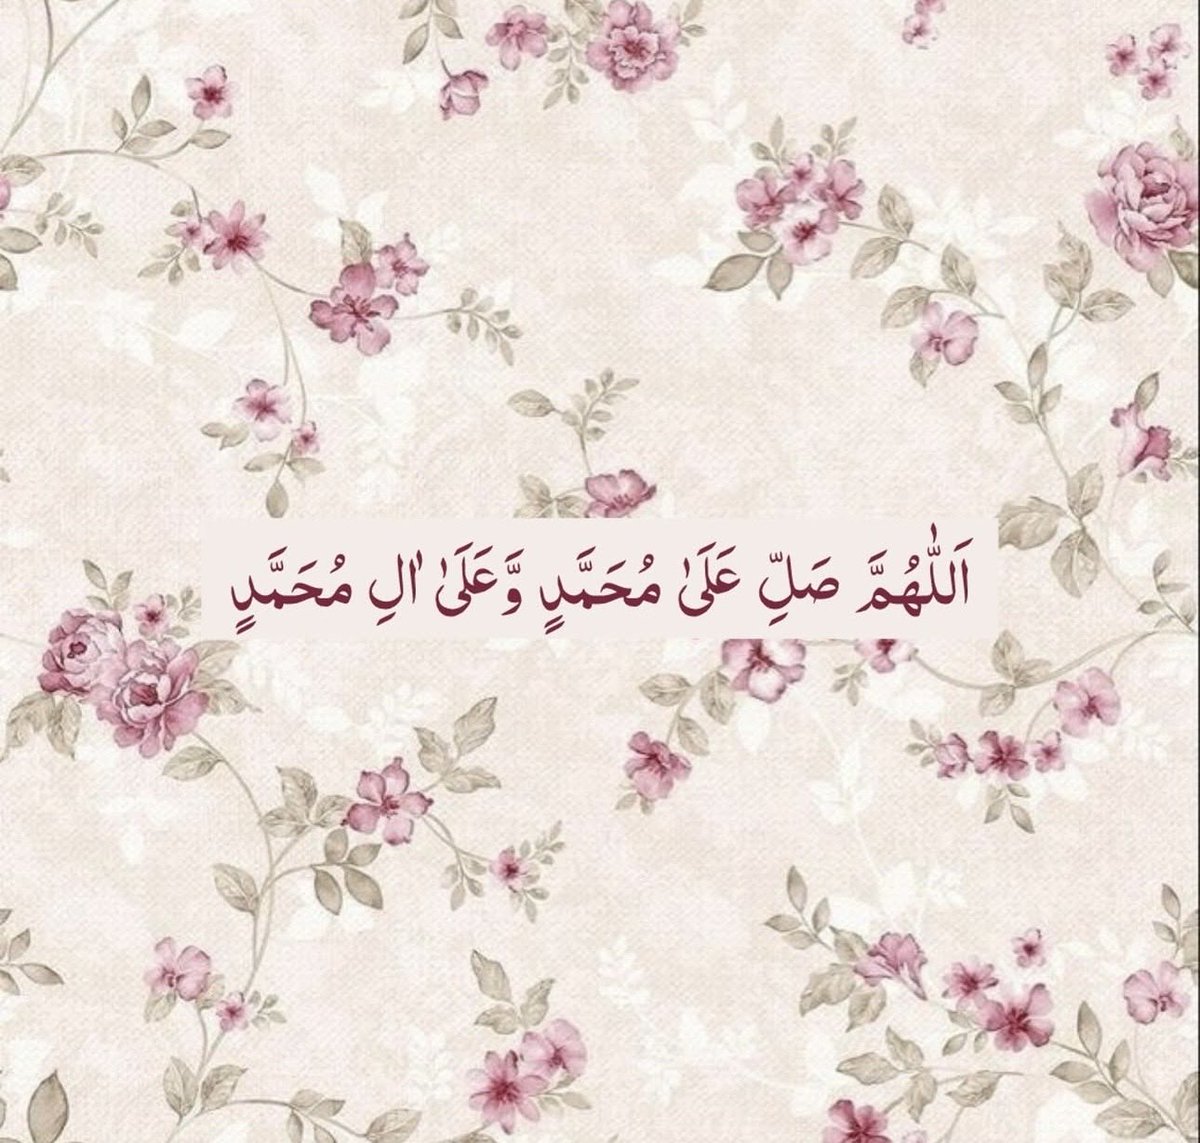 اَللّٰهُمَّ صَلِّ عَلَىٰ مُحَمَّدٍ وَّعَلَىٰ اٰلِ مُحَمَّدٍ